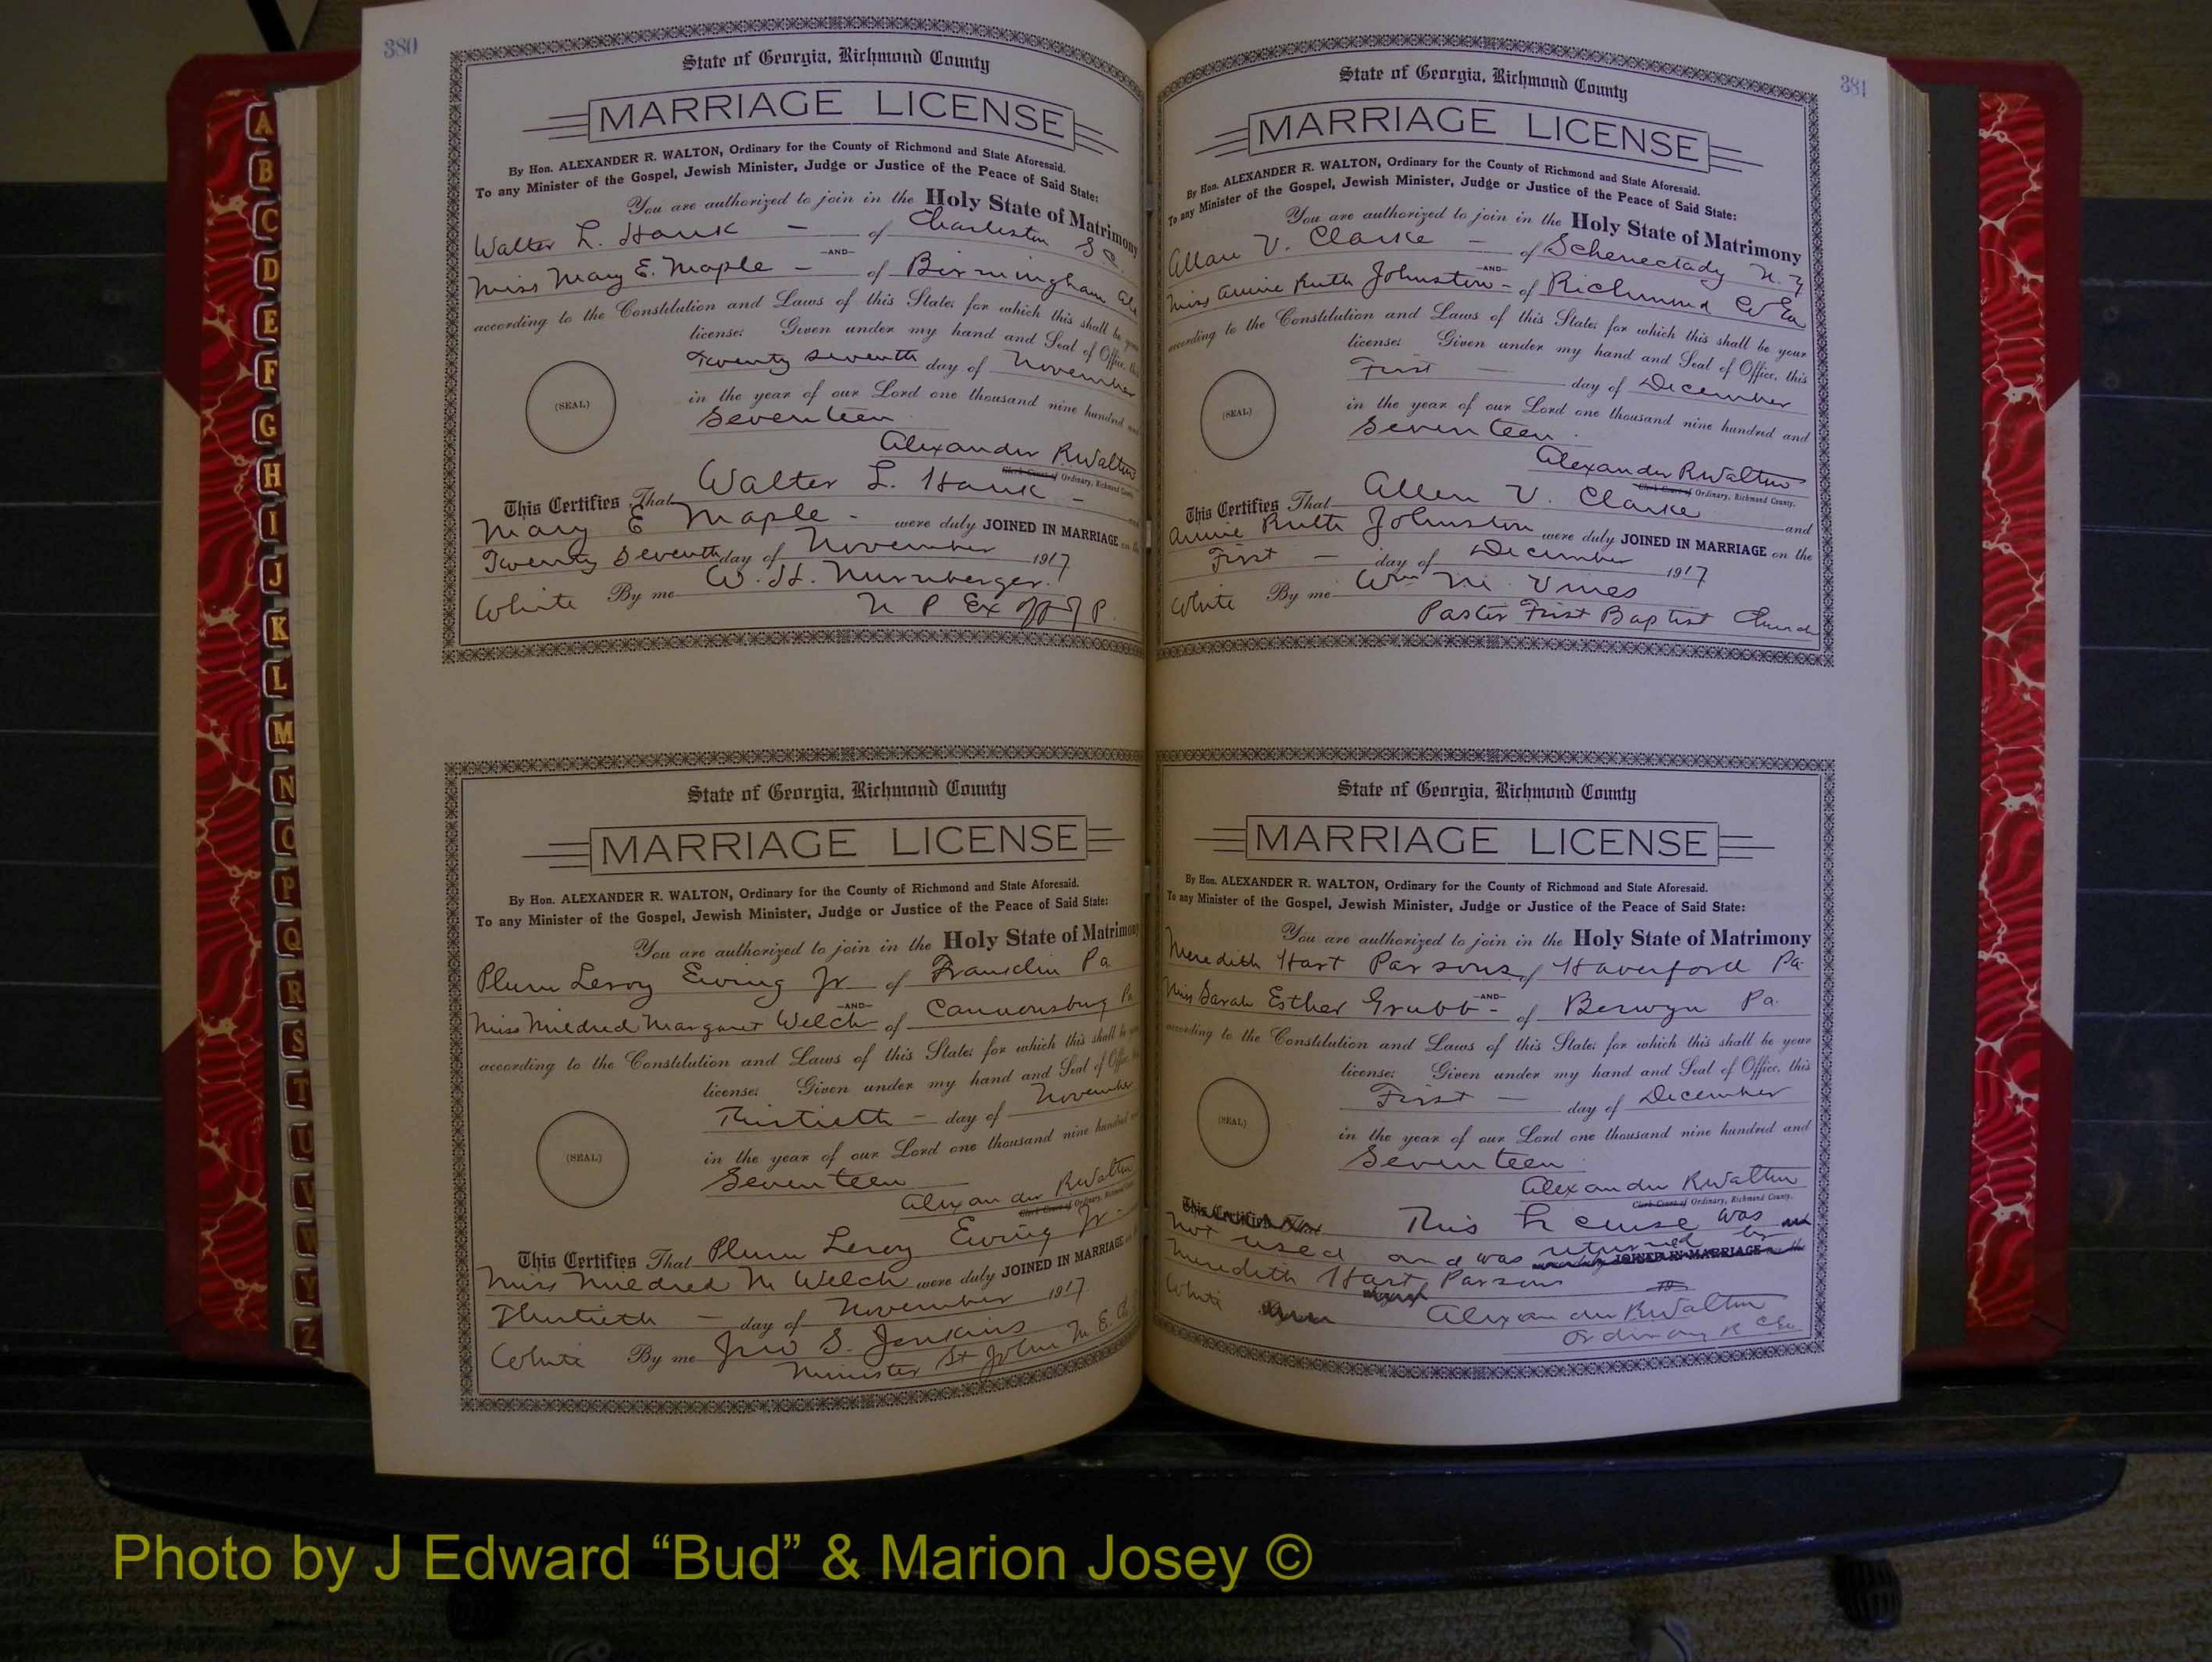 380
State of Georgia, Richmond County
MARRIAGE LICENSE
By Hon. ALEXANDER R. WALTON, Ordinary for the County of Richmond and State Aforesaid.
To any Minister of the Gospel, Jewish Minister, Judge or Justice of the Peace of Said State:
You are authorized to join in the Holy State of Matrimony
Walter L. Hauk - of Charleston S C.
-AND-
Miss Mary E. Maple - of Birmingham Ala
according to the Constitution and Laws of this State; for which this shall be your
license: Given under my hand and Seal of Office, this
Twenty Seventh day of November
(SEAL)
in the year of our Lord one thousand nine hundred and
Seventeen
Alexander R Walton
Clerk Court of Ordinary, Richmond County
This Certifies That Walter L. Hauk -
Mary E Maple - were duly JOINED IN MARRIAGE on the
Twenty Seventh day of November 1917
White By me W. H. Nurnberger.
N P Ex off J P.
State of Georgia, Richmond County
MARRIAGE LICENSE
By Hon. ALEXANDER R. WALTON, Ordinary for the County of Richmond and State Aforesaid.
To any Minister of the Gospel, Jewish Minister, Judge or Justice of the Peace of Said State:
You are authorized to join in the Holy State of Matrimony
Plum Leroy Ewing Jr of Franklin Pa
-AND-
Miss Mildred Margaret Welch of Cannonsburg Pa
according to the Constitution and Laws of this State; for which this shall be your
license: Given under my hand and Seal of Office, this
Thirtieth - day of November
(SEAL)
in the year of our Lord one thousand nine hundred and
Seventeen
Alexander R Walton
Clerk Court of Ordinary, Richmond County
This Certifies That Plum Leroy Ewing Jr -
Miss Mildred M Welch were duly JOINED IN MARRIAGE on
Thirtieth - day of November 1917
White By me Jno S. Jenkins
Minister St John M. E. Ch
381
State of Georgia, Richmond County
MARRIAGE LICENSE
By Hon. ALEXANDER R. WALTON, Ordinary for the County of Richmond and State Aforesaid.
To any Minister of the Gospel, Jewish Minister, Judge or Justice of the Peace of Said State:
You are authorized to join in the Holy State of Matrimony
Allan V. Clarke - of Schenectady N. Y
-AND-
Miss Annie Ruth Johnston - of Richmond Co Ga
according to the Constitution and Laws of this State; for which this shall be your
license: Given under my hand and Seal of Office, this
First - day of December
(SEAL)
in the year of our Lord one thousand nine hundred and
Seventeen.
Alexander R Walton
Clerk Court of Ordinary, Richmond County.
This Certifies That Allen V. Clarke and
Annie Ruth Johnston were duly JOINED IN MARRIAGE on the
First - day of December 1917
White By me Wm M. Vines
Paster First Baptist Church
State of Georgia, Richmond County
MARRIAGE LICENSE
By Hon. ALEXANDER R. WALTON, Ordinary for the County of Richmond and State Aforesaid.
To any Minister of the Gospel, Jewish Minister, Judge or Justice of the Peace of Said State:
You are authorized to join in the Holy State of Matrimony
Meredith Hart Parsons of Haverford Pa.
-AND-
Miss Sarah Esther Grubb - of Berwyn Pa.
according to the Constitution and Laws of this State; for which this shall be your
license: Given under my hand and Seal of Office, this
First - day of December
(SEAL)
in the year of our Lord one thousand nine hundred and
Seventeen
Alexander R Walton
Clerk Court of Ordinary, Richmond County.
This Certifies That This License was and
not used and was returned by JOINED IN MARRIAGE on the
Meredith Hart Parsons 19
White Alexander R Walton
Ordinary R C Ga
A
B
C
D
E
F
G
H
I
J
K
L
M
N
O
P
Q
R
S
T
U
V
W
Y
Z
Photo by J Edward “Bud” & Marion Josey ©